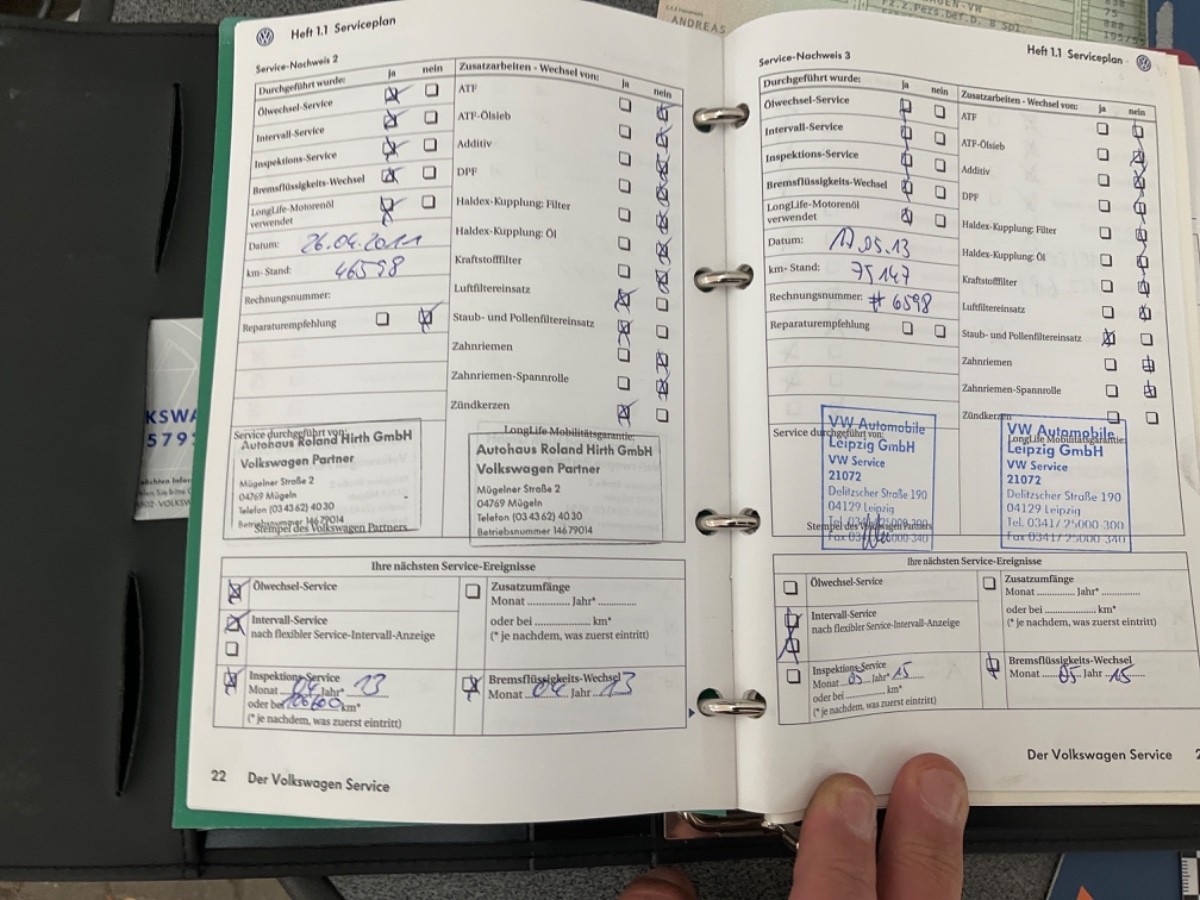 Heft 1.1 Serviceplan
Service-Nachweis 2
Durchgeführt wurde: ja nein
Ölwechsel-Service
Intervall-Service
Inspektions-Service
Bremsflüssigkeits-Wechsel
LongLife-Motorenöl
verwendet
Datum: 26.04.2011
km-Stand: 46598
Rechnungsnummer:
Reparaturempfehlung
Zusatzarbeiten - Wechsel von: ja nein
ATF
ATF-Ölsieb
Additiv
DPF
Haldex-Kupplung: Filter
Haldex-Kupplung: Öl
Kraftstofffilter
Luftfiltereinsatz
Staub- und Pollenfiltereinsatz
Zahnriemen
Zahnriemen-Spannrolle
Zündkerzen
Service durchgeführt von:
Autohaus Roland Hirth GmbH
Volkswagen Partner
Mügelner Straße 2
04769 Mügeln
Telefon (03 43 62) 40 30
Betriebsnummer 14679014
Stempel des Volkswagen Partners
LongLife Mobilitätsgarantie:
Autohaus Roland Hirth GmbH
Volkswagen Partner
Mügelner Straße 2
04769 Mügeln
Telefon (03 43 62) 40 30
Betriebsnummer 14679014
Ihre nächsten Service-Ereignisse
Ölwechsel-Service
Intervall-Service
nach flexibler Service-Intervall-Anzeige
Inspektions-Service
Monat 04 Jahr* 13
oder bei km*
(* je nachdem, was zuerst eintritt)
Zusatzumfänge
Monat Jahr*
oder bei km*
(* je nachdem, was zuerst eintritt)
Bremsflüssigkeits-Wechsel
Monat 04 Jahr 13
22 Der Volkswagen Service
Heft 1.1 Serviceplan
Service-Nachweis 3
Durchgeführt wurde: ja nein
Ölwechsel-Service
Intervall-Service
Inspektions-Service
Bremsflüssigkeits-Wechsel
LongLife-Motorenöl
verwendet
Datum: 17.05.13
km-Stand: 75147
Rechnungsnummer: # 6598
Reparaturempfehlung
Zusatzarbeiten - Wechsel von: ja nein
ATF
ATF-Ölsieb
Additiv
DPF
Haldex-Kupplung: Filter
Haldex-Kupplung: Öl
Kraftstofffilter
Luftfiltereinsatz
Staub- und Pollenfiltereinsatz
Zahnriemen
Zahnriemen-Spannrolle
Zündkerzen
Service durchgeführt von:
VW Automobile
Leipzig GmbH
VW Service
21072
Delitzscher Straße 190
04129 Leipzig
Stempel des Volkswagen Partners
LongLife Mobilitätsgarantie:
VW Automobile
Leipzig GmbH
VW Service
21072
Delitzscher Straße 190
04129 Leipzig
Tel. 0341/ 25000 300
Fax 0341/ 25000-340
Ihre nächsten Service-Ereignisse
Ölwechsel-Service
Intervall-Service
nach flexibler Service-Intervall-Anzeige
Inspektions-Service
Monat 05 Jahr* 15
oder bei km*
(* je nachdem, was zuerst eintritt)
Zusatzumfänge
Monat Jahr*
oder bei km*
(* je nachdem, was zuerst eintritt)
Bremsflüssigkeits-Wechsel
Monat 05 Jahr 15
Der Volkswagen Service
ANDREAS